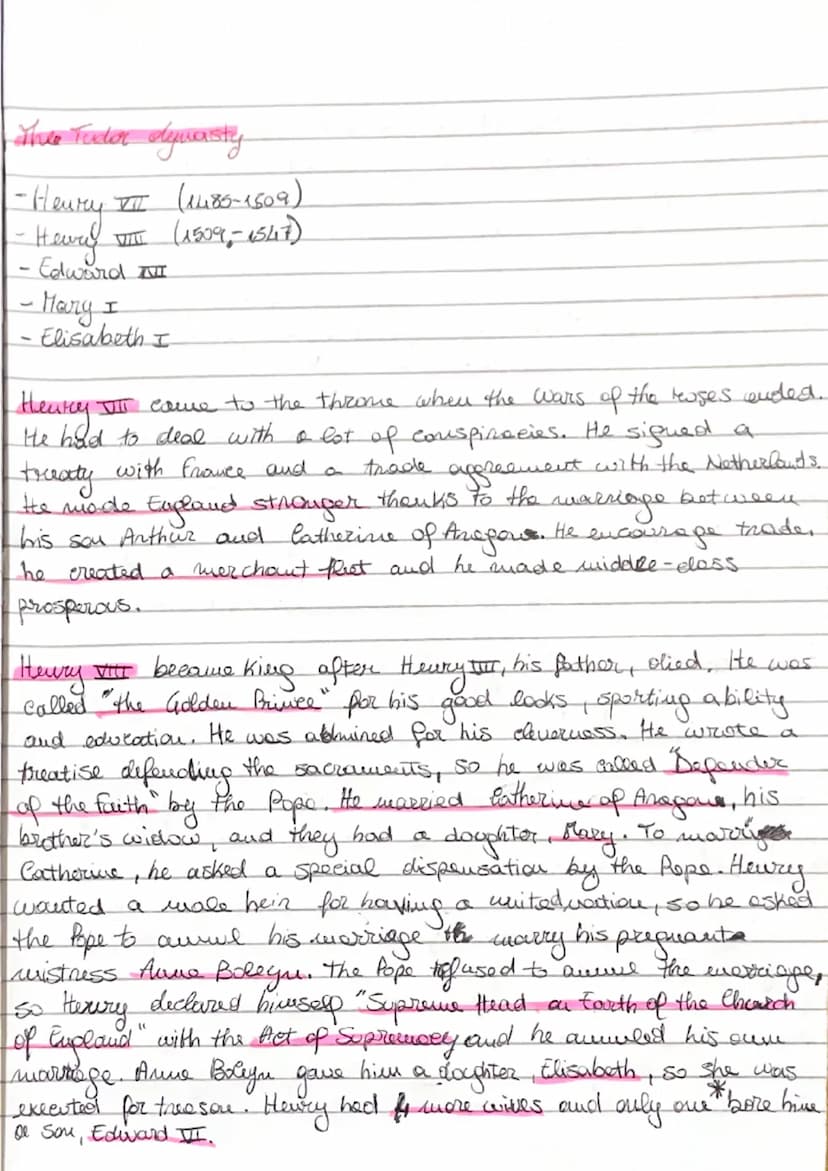 The Tudor dynasty
- Henry VII (1485-1509)
- Henry VIII (1509,-1547)
- Edward VI
- Mary I
- Elisabeth I
Henry VII came to the throne when the Wars of the roses ended.
He had to deal with a lot of conspiracies. He signed a
treaty with France and a trade aggreement with the Netherlands.
He made England stronger thanks to the marriage between
his son Arthur and Catherine of Aragon. He encourage trade,
he created a merchant fleet and he made middle-class
prosperous.
Henry VIII became King after Henry VII, his father, died. He was
called "the Golden Prince" for his good looks, sporting ability
and education. He was admired for his cleverness. He wrote a
treatise defending the sacraments, so he was called "Defender
of the faith" by the Pope. He married Catherine of Aragon, his
brother's widow, and they had a doughter, Mary. To marry
Catherine, he asked a special dispensation by the Pope. Henry
wanted a male heir for having a united nation, so he asked
the Pope to annul his marriage to marry his pregnant
mistress Anne Boleyn. The Pope refused to annul the marriage,
so Henry declared himself "Supreme Head on Earth of the Church
of England" with the Act of Supremacy and he annulled his own
marriage. Anne Boleyn gave him a doughter, Elisabeth, so she was
executed for treason. Henry had 4 more wives and only one* bore him
a son, Edward VI.